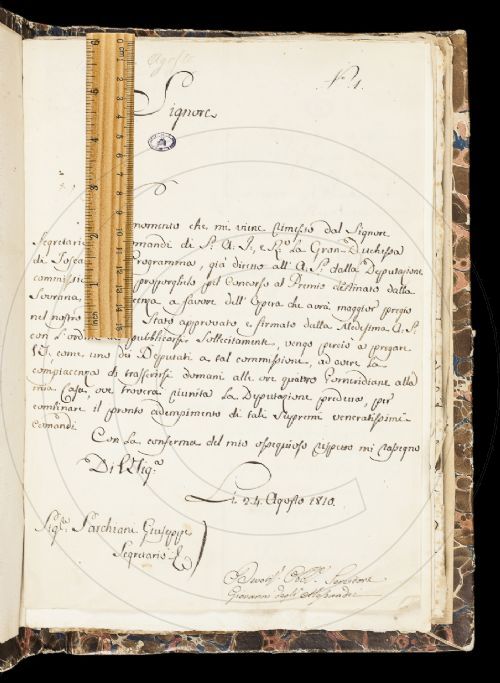 Agosto
N.º 1.
Signore
momento che mi viene rimesso dal Signore
Segretario mandi di S. A. I., e R.le la Gran-Duchessa
di Tosca Programma, già diretto all' A. S. dalla Deputazione
commissio proporglielo pel Concorso al Premio destinato dalla
Sovrana, enza a favore dell' Opera che avrà maggior pregio
nel nostro Stato approvato e firmato dalla Medesima A. S.
con l'ordi pubblicarsi sollecitamente, vengo perciò a pregare
V.S. come uno dei Deputati a tal commissione, ad avere la
compiacenza di trasferirsi domani alle ore quattro Pomeridiane alla
mia Casa, ove troverà riunita la Deputazione predetta, per
combinare il pronto adempimento di tali Supremi veneratissimi
comandi
Con la conferma del mio ossequioso rispetto mi rassegno
Di V. Sig.ª
Li 24. Agosto 1810.
Sig.re Sarchiani Giuseppe
Segretario
Servitore
Giovanni degli Alessandri